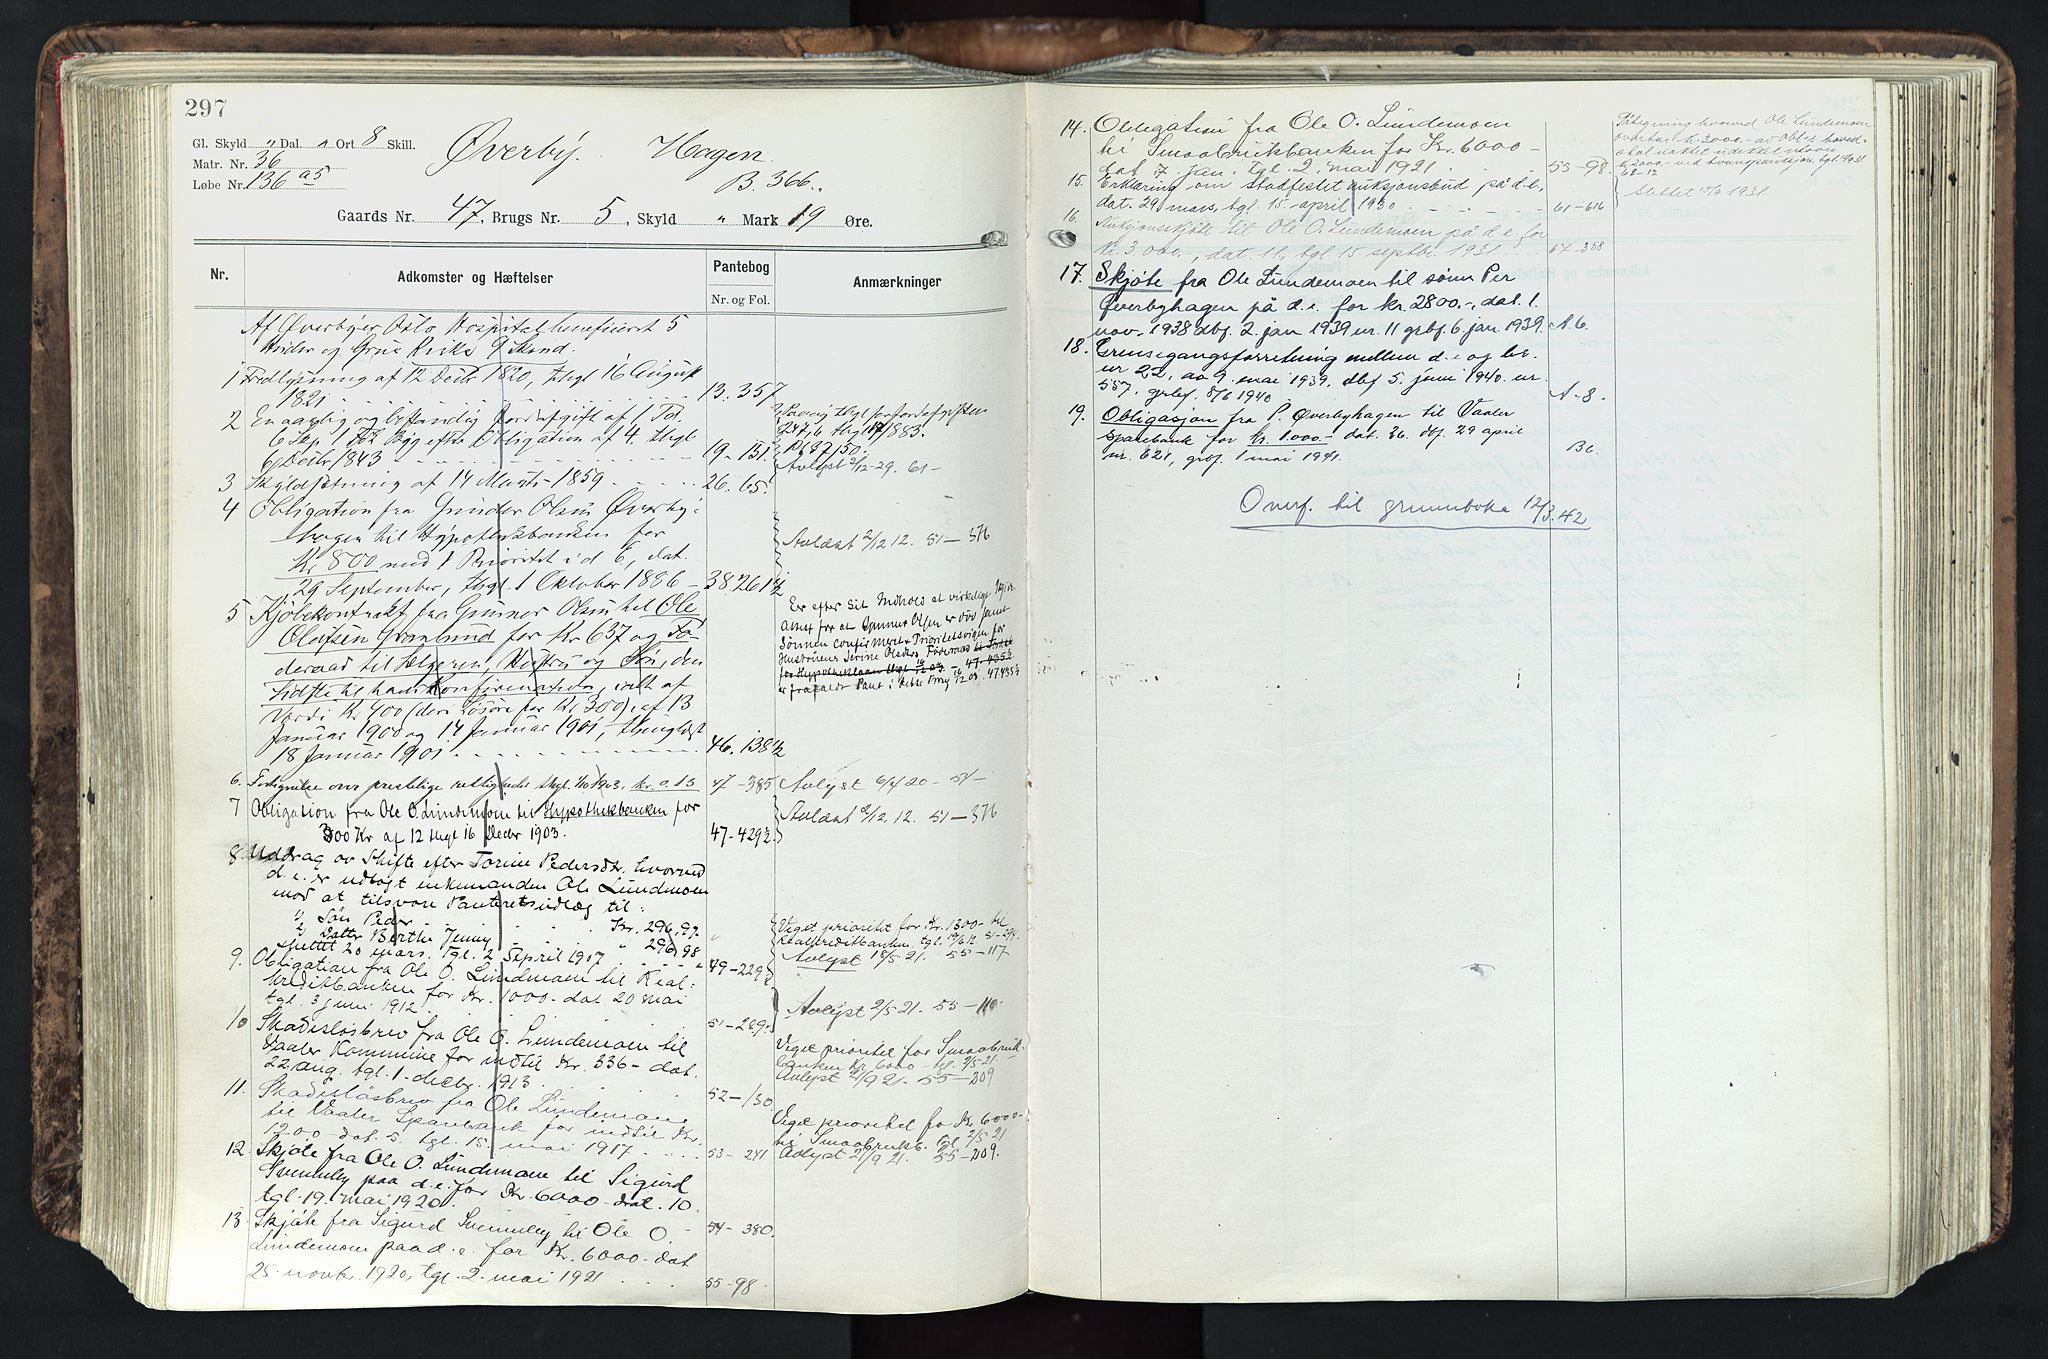 297
Gl. Skyld " Dal. " Ort 8 Skill.
Matr. Nr. 36
Løbe Nr. 136 a5
Øverby. Hagen.
B. 366.
Gaards Nr. 47, Brugs Nr. 5, Skyld " Mark 19 Øre.
Nr.
Adkomster og Hæftelser
Pantebog
Nr. og Fol.
Anmærkninger
Af Øverby er Oslo Hospital beneficeret 5
og Grue 9 Skind.
1 Fredlysning af 12 Decbr 1820, thgl 16 August
1821 13. 357
2 En aarlig og bestandig Jordafgift af 1 Td.
6 Skp. 1 Byg efter Obligation af 4. thgl
6 Decbr 1843 19-151.
1883.
Avlyst 2/12-29. 61-
3 Skyldsetning af 14 Marts 1859 26. 65.
4 Obligation fra Gunder Olsen Øverby-
hagen til Hypotheksbanken for
Kr. 800 med 1 Prioritet i d. E, dat.
29 September, thgl. 1 Oktober 1886 38 261 1/2
Avlæst 2/12 12. 51-376
5 Kjøbekontrakt fra Gunner Olsen til Ole
Olafsen Gramlund for Kr 637 og Fø-
deraad til Sælgeren, Hustru og Søn, den
sidste til hans Konfirmation, ialt af
Værdi Kr 400 (ders Løsøre for Kr 300), af 13
Januar 1900 og 14 Januar 1901, thinglæst
18 Januar 1901. 46. 138 1/2
Er efter sit Indhold at
Attest for at Gunner Olsen er død samt
Sønnen confirmeret. Prioritetsvigen for
Hustruens Serine Olsdrs Føderaad
6. Fortegnelse over prestelige rettigheder thgl. 1903. kr. 0.15 47-385
Avlyst 6/4 20- 54-
7 Obligation fra Ole O. Lundemoen til Hypothekbanken for
300 Kr af 12 thgl 16 Decbr 1903. 47-429 1/2
Avlæst 2/12. 12. 51-376
8. Uddrag av Skifte efter Torine Pedersdtr. hvorved
d. e. er udlagt enkemanden Ole Lundemoen
mod at tilsvare Panteretsudlæg til:
1) Søn Peder Kr. 296,97.
2) Datter Berthe Jenny " 296,98
sluttet 20 mars. tgl. 2 April 1907 49-229
Viget prioritet for Kr. 1300- til
Realkreditbanken, tgl. 19/6 12. 51-294.
Avlyst 18/5 21. 55-117
9. Obligation fra Ole O. Lundemoen til Real-
kreditbanken for Kr. 1000- dat. 20 mai
tgl. 3 juni 1912. 51-289.
Avlyst 2/5 21. 55-110.
10 Skadesløsbrev fra Ole O. Lundemoen til
Vaaler Kommune for indtil Kr. 336- dat.
22 aug. tgl. 1. decbr. 1913. 52-130
Veget prioritet for Smaabruk-
banken Kr. 6000- tgl. 2/5 21.
Avlyst 21/9 21. 55-209
11. Skadesløsbrev fra Ole Lundemoen
til Vaaler Sparebank for indtil Kr.
1200- dat. 5. tgl. 15. mai 1917. 53-241
Veget prioritet for Kr. 6000-
til Smaabrukb. tgl. 2/5 21
Avlyst 21/9 21. 55-209.
12. Skjøte fra Ole O. Lundemoen til Sigurd
Svenneby paa d. e. for Kr. 6000- dat. 10.
tgl. 19. mai 1920. 54-380.
13 Skjøte fra Sigurd Svenneby til Ole O.
Lundemoen paa d. e. for Kr. 6000- dat
25. novbr. 1920, tgl. 2. mai 1921 55-98.
14. Obligation fra Ole O. Lundemoen
til Smaabrukbanken for Kr. 6000-
dat. 17. jan. tgl. 2. mai 1921. 55-98.
Påtegning hvorved Ole Lundemoen
overtar kr. 3000.- av obl.s hoved-
Slettet 1931
15. Erklæring om stadfestet auksjonsbud på d. e.,
dat. 29 mars, tgl. 15. april 1930 61-616
16 Auksjonsskjøte til Ole O. Lundemoen på d. e. for
kr. 3.000.-, dat. 11, tgl 15. septbr. 1931 64-358
17. Skjøte fra Ole Lundemoen til sønn Per
Øverbyhagen på d. e. for kr. 2800.-, dat. 1.
nov. 1938 dbf. 2. jan 1939 nr. 11 grbf. 6. jan. 1939. A. 6.
18. Grensegangsforretning mellem d. e. og br.
nr 22, av 9. mai 1939, dbf 5. juni 1940 nr.
557, grbf. 8/6 1940 A-8.
19. Obligasjon fra P. Øverbyhagen til Vaaler
sparebank for kr. 1.000.- dat. 26. dbf. 29 april
nr. 621, grbf. 1 mai 1941. B 6.
Overf. til grunnboka 12/3.42